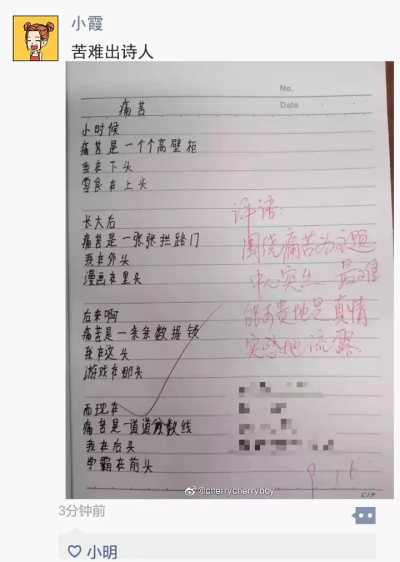 小霞
苦难出诗人
No.
Date
痛苦
小时候
痛苦是一个个高壁柜
我在下头
零食在上头
长大后
痛苦是一张张拦路门
我在外头
漫画在里头
后来啊
痛苦是一条条数据锁
我在这头
游戏在那头
而现在
痛苦是一道道分数线
我在后头
学霸在前头
评语:
围绕痛苦为主题
中心突出，最难
能可贵地是真情
实感地流露
9.16
@cherrycherryboy
3分钟前
小明